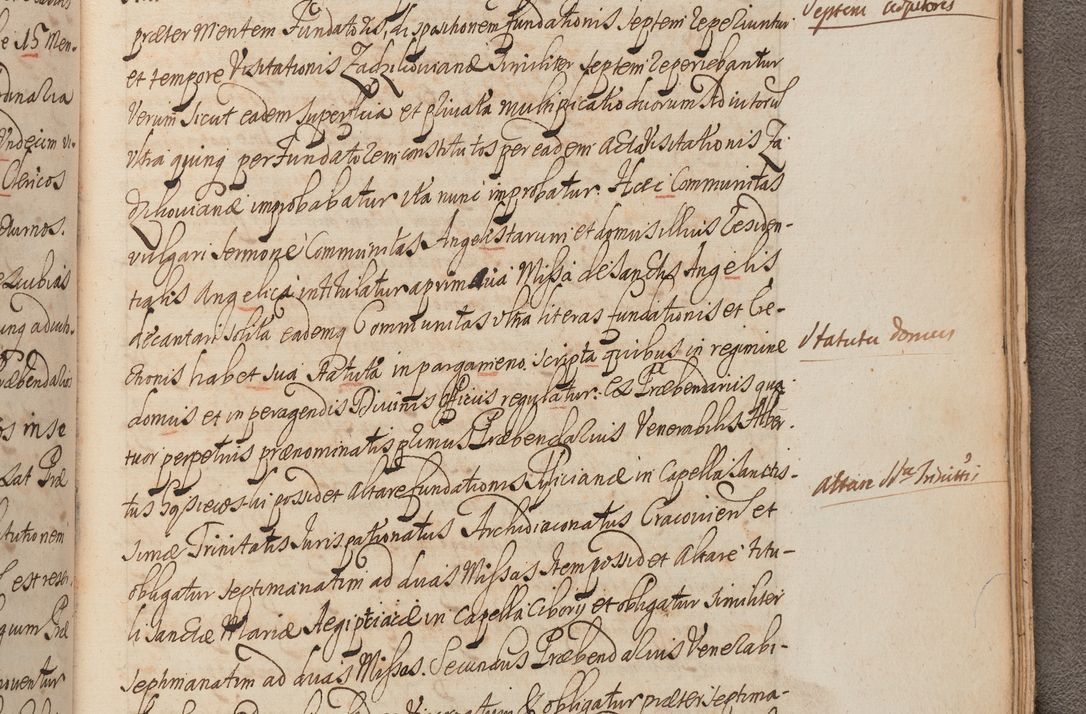 præter Mentem Fundatoris, dispositionem fundationis septem reperiuntur
et tempore Visitationis Zadzikovianæ similiter septem reperiebantur
Verum sicut eadem superflua et privata multiplicatio duorum Adiutorũ
vltra quinq per Fundatorem constitutos per eadem acta Visitationis Za
dzikovianæ improbabatur ita nunc improbatur. Hæc Communitas
vulgari sermone Communitas Angelistarum et domus illius residen-
tialis Angelica intitulatur a primaria Missa de Sanctis Angelis
decantari solita eademq Communitas vltra literas fundationis et Ere-
ctionis habet sua Statuta in pargameno scripta quibus in regimine
domus et in peragendis Divinis officiis regulatur. Ex Præbendariis qua
tuor perpetuis prænominatis primus Præbendarius Venerabilis Alber-
tus possidet altare fundationis in Capella Sanctis-
simæ Trinitatis Iurispationatus Archidiaconatus Cracovien et
obligatur septimanatim ad duas Missas Item possidet Altare titu-
li Sanctæ Mariæ Aegiptiacæ in Capella Ciborij et obligatur similiter
septimanatim ad duas Missas. Secundus Præbendarius Venerabi-
et obligatur præter septima-
Septem adjutores
Statuta domus
Altare SSæ Trinittis
e 15 Men-
rdinaria
Undecim vi-
Clericos
eturnos.
e Quibus
ung adiuto-
Præbendarios
os in se
Lat Præ
tutionem
C est reser
quum Præ
moventur